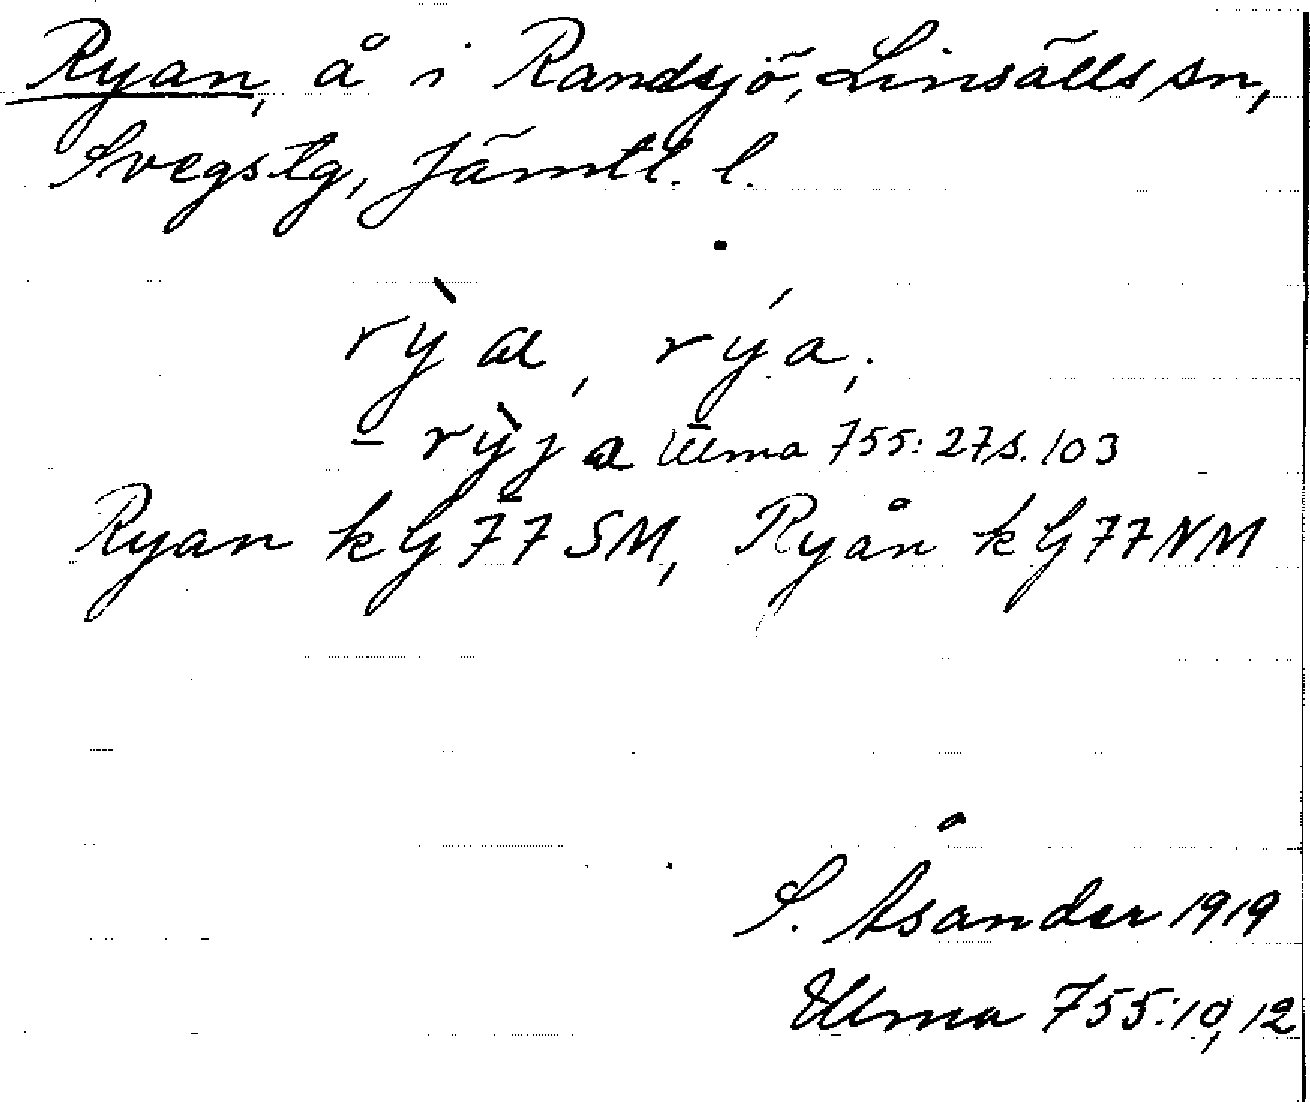 Ryan, å i Randsjö, Linsälls sn,
Svegs tg, Jämtl. l.
rỳa, rýa,
- rỳja Ulma 755:27 s. 103
Ryan k G 77 SM, Ryån k G 77 NM
S. Åsander 1919
Ulma 755:10, 12